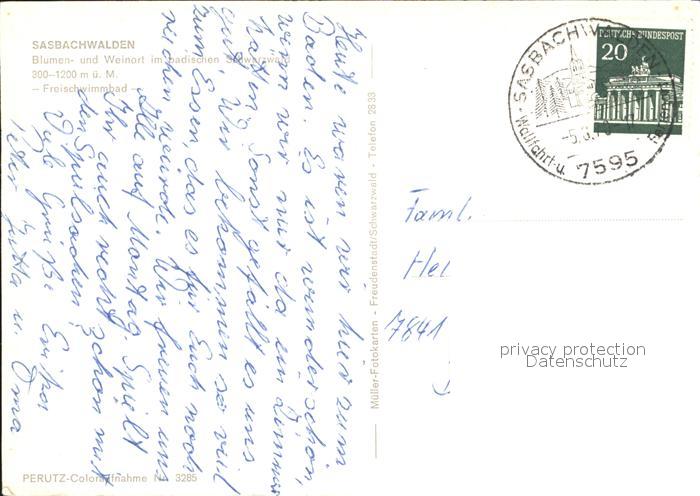 SASBACHWALDEN
Blumen- und Weinort im badischen Schwarzwald
300–1200 m ü. M.
— Freischwimmbad —
Heute waren wir hier zum
Baden. Es ist wunderschön,
wenn wir nur da ein Zimmer
hätten. Sonst gefällt es uns
gut. Wir bekommen so viel
zum Essen das es für Euch noch
reichen würde. Wir freuen uns
alle auf Montag. Spielt
Ihr auch recht schön mit
den Spielsachen.
Viele Grüße Eure
Jutta u. Oma
PERUTZ-Coloraufnahme Nr. 3285
Müller-Fotokarten - Freudenstadt/Schwarzwald - Telefon 2833
DEUTSCHE BUNDESPOST
20
SASBACHWALDEN
7595
Faml.
Hei
7841
privacy protection
Datenschutz